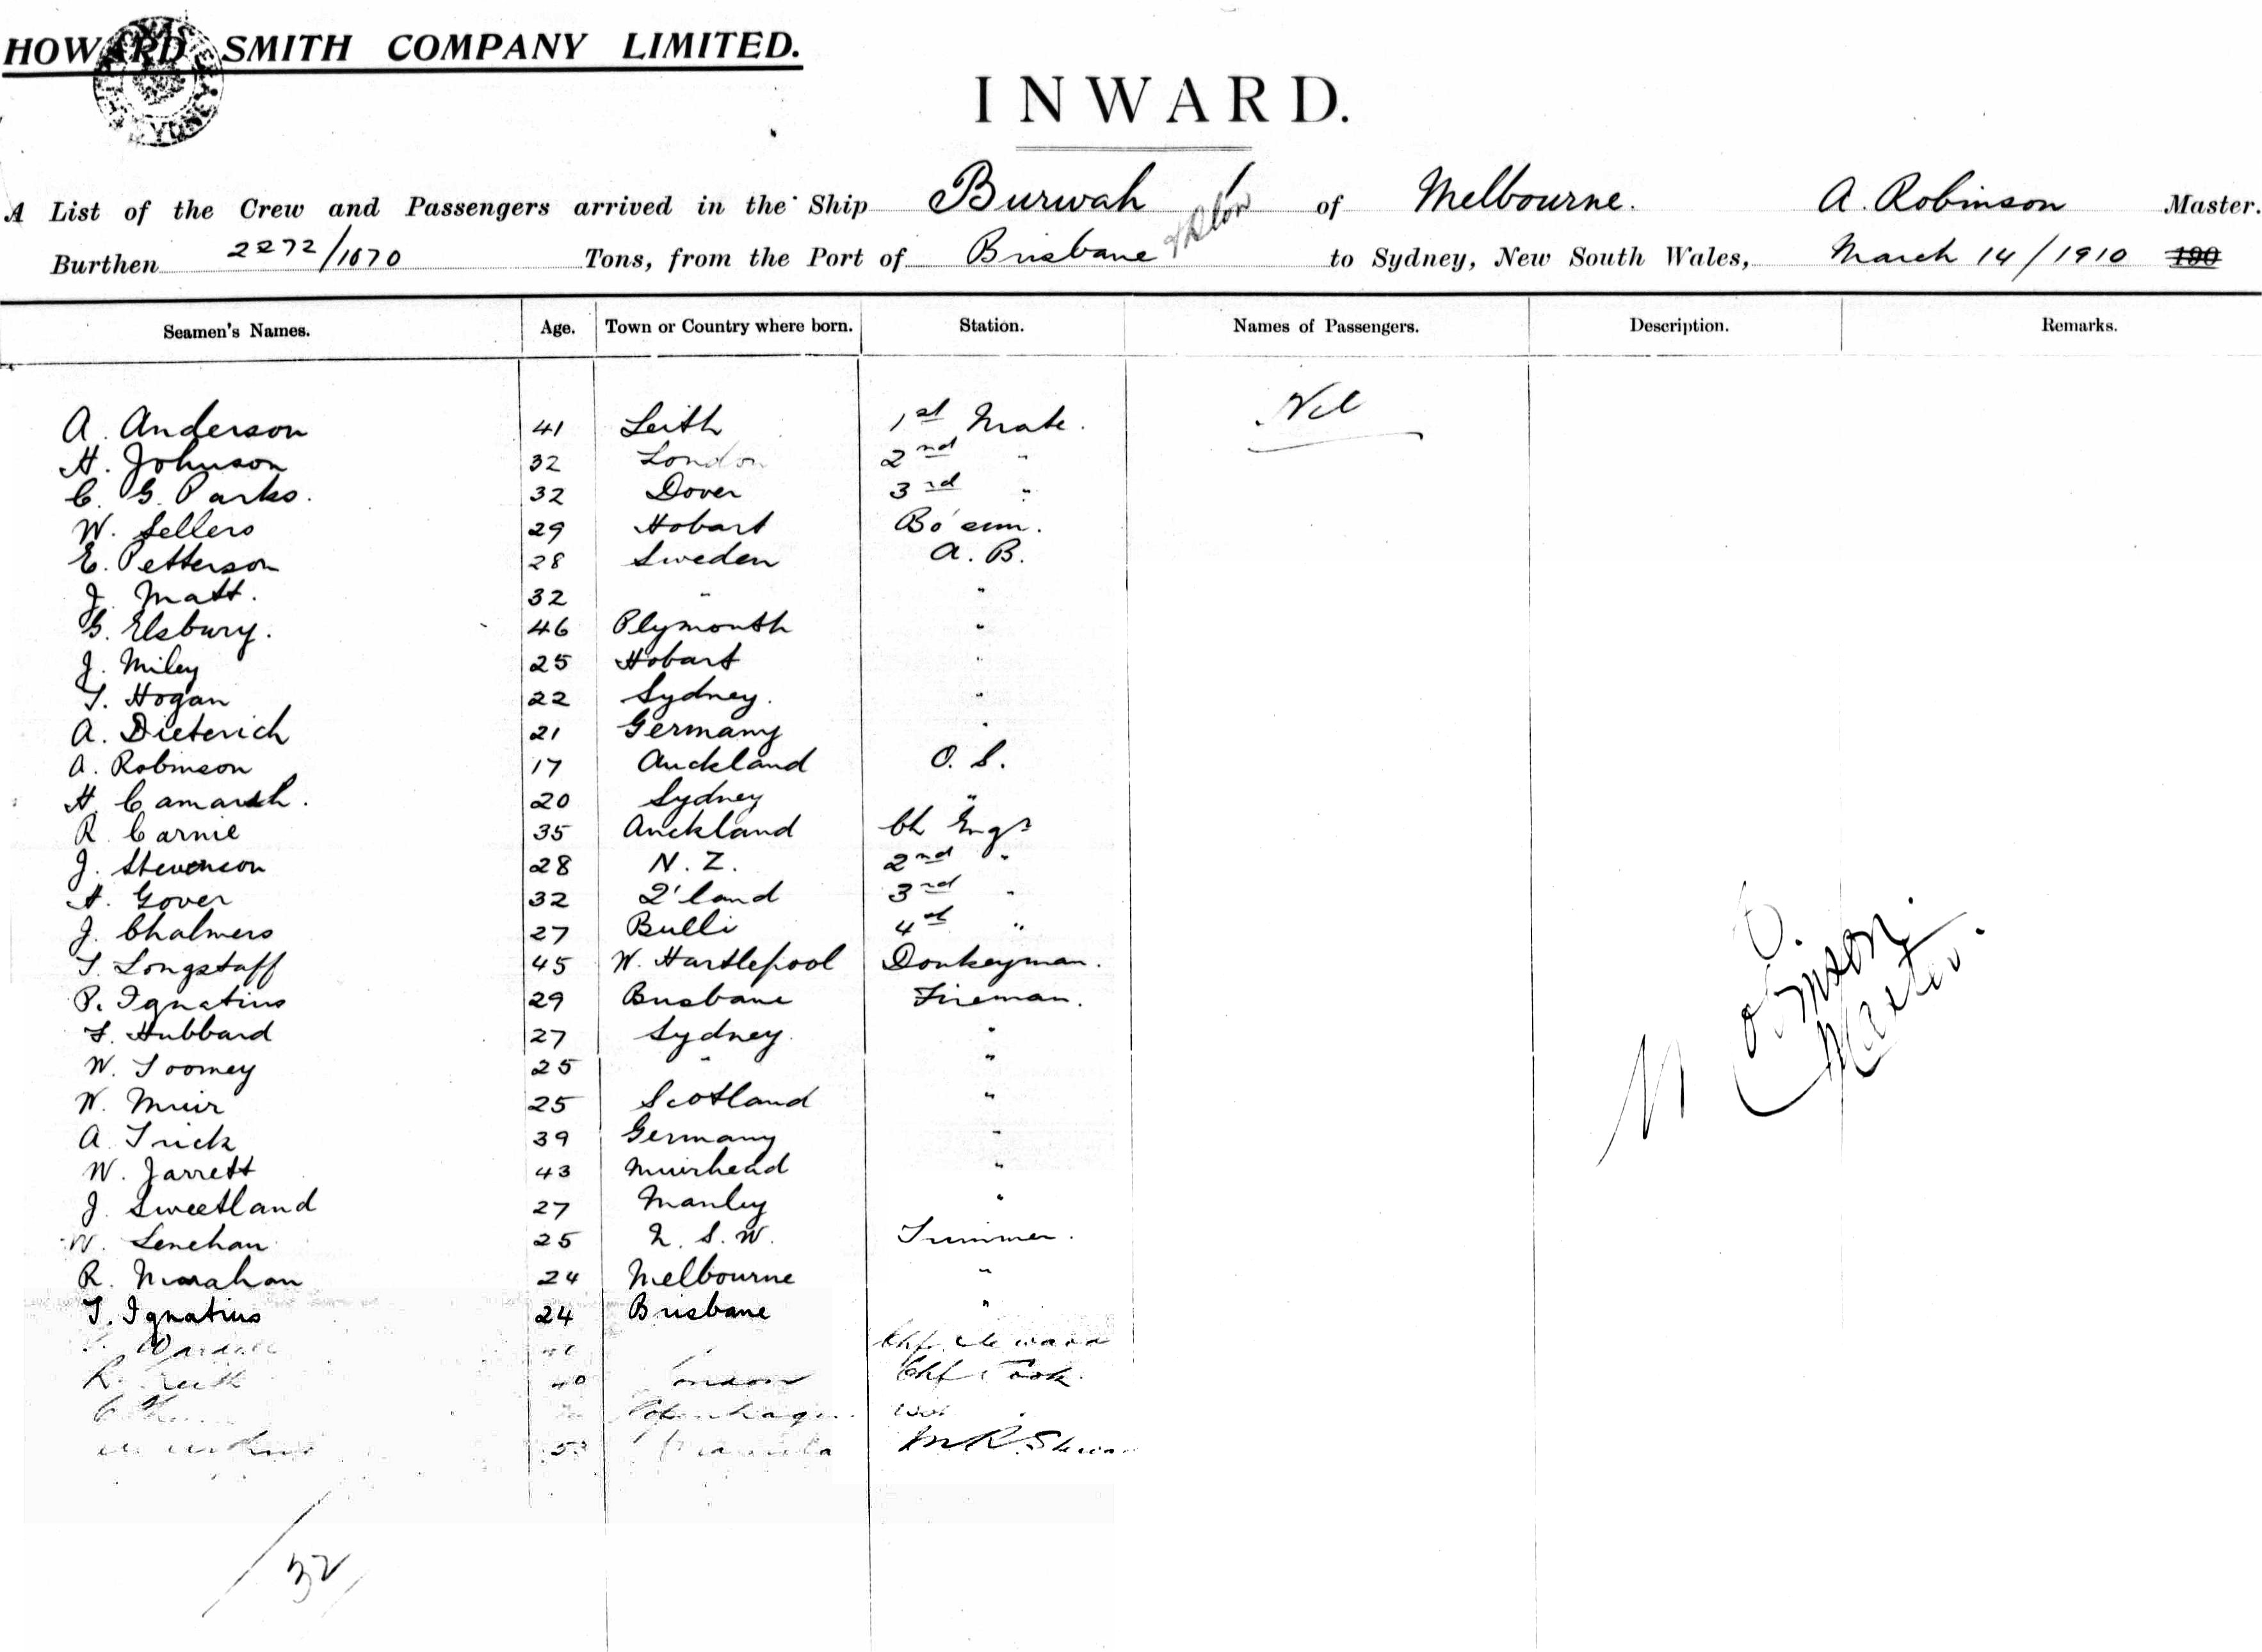 HOWARD SMITH COMPANY LIMITED.
INWARD.
A List of the Crew and Passengers arrived in the Ship Burwah of Melbourne. A. Robinson Master.
Burthen 2272/1670 Tons, from the Port of Brisbane to Sydney, New South Wales, March 14/1910 190
Seamen's Names. Age. Town or Country where born. Station. Names of Passengers. Description. Remarks.
A. Anderson 41 Leith 1st Mate. Nil
H. Johnson 32 London 2nd "
C. G. Parks. 32 Dover 3rd "
W. Sellers 29 Hobart Bo'sun.
E. Petterson 28 Sweden A. B.
J. Matt. 32 " "
G. Elsbury. 46 Plymouth "
J. Miley 25 Hobart "
T. Hogan 22 Sydney. "
A. Dieterich 21 Germany "
A. Robinson 17 Auckland O. S.
H. 20 Sydney "
R. Carnie 35 Auckland Ch Engr
J. Stevenson 28 N. Z. 2nd "
H. Gover 32 Q'land 3rd "
J. Chalmers 27 Bulli 4th "
T. Longstaff 45 W. Hartlepool Donkeyman.
P. Ignatius 29 Brisbane Fireman.
F. Hubbard 27 Sydney. "
W. Toomey 25 " "
W. Muir 25 Scotland "
A. Frick 39 Germany "
W. Jarrett 43 Muirhead "
J. Sweetland 27 Manley "
W. Lenehan 25 N. S. W. Trimmer.
R. 24 Melbourne "
T. Ignatius 24 Brisbane "
Chf
R. 40 London Chf Cook.
Copenhagen
53
32
Robinson.
Master.